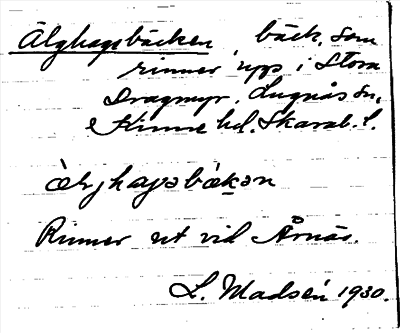 Älghagsbäcken, bäck, som
rinner upp i Stora
Dragmyr. Lugnås sn,
Kinne hd. Skarab. l.
älghagsbäkən
Rinner ut vid Årnäs.
L. Madsén 1930.